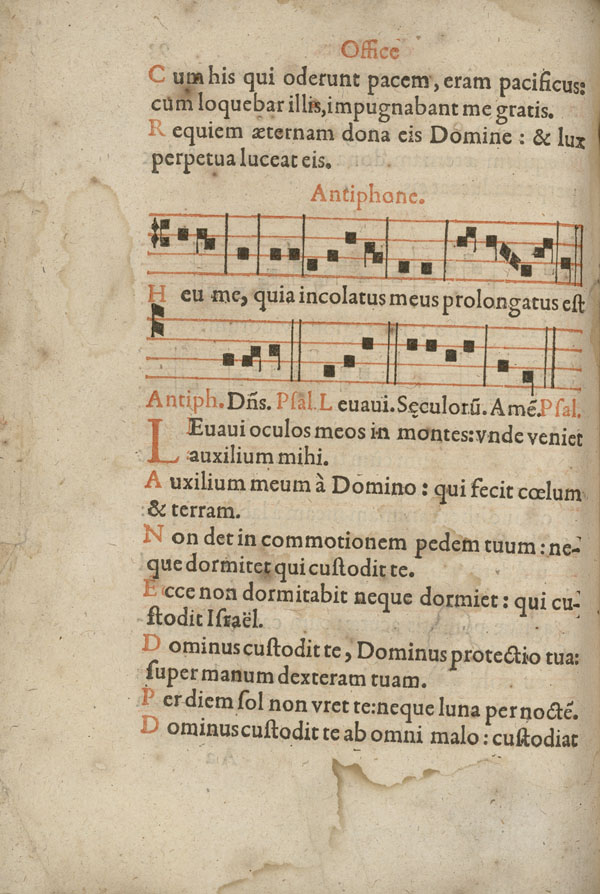 Office
Cum his qui oderunt pacem, eram pacificus:
cùm loquebar illis, impugnabant me gratis.
Requiem æternam dona eis Domine: & lux
perpetua luceat eis.
Antiphone.
Heu me, quia incolatus meus prolongatus est
Antiph. Dñs. Psal. Leuaui. Sęculorũ. Amẽ. Psal.
LEuaui oculos meos in montes: vnde veniet
auxilium mihi.
Auxilium meum à Domino: qui fecit cœlum
& terram.
Non det in commotionem pedem tuum: ne-
que dormitet qui custodit te.
Ecce non dormitabit neque dormiet: qui cu-
stodit Israël.
Dominus custodit te, Dominus protectio tua:
super manum dexteram tuam.
Per diem sol non vret te: neque luna per noctẽ.
Dominus custodit te ab omni malo: custodiat